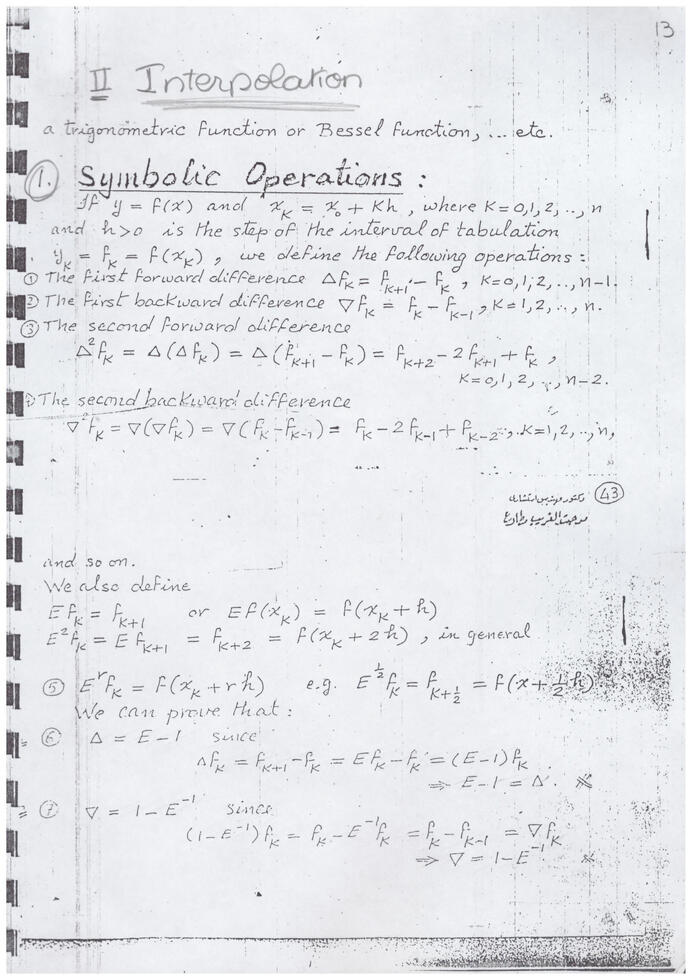 13
II Interpolation
a trigonometric function or Bessel function, ... etc.
1. Symbolic Operations:
If y = f(x) and x_K = x_0 + Kh, where K=0,1,2,..,n
and h>0 is the step of the interval of tabulation
y_K = f_K = f(x_K), we define the following operations:
① The first forward difference Δf_K = f_{K+1} - f_K, K=0,1,2,..,n-1.
② The first backward difference ∇f_K = f_K - f_{K-1}, K=1,2,..,n.
③ The second forward difference
Δ²f_K = Δ(Δf_K) = Δ(f_{K+1} - f_K) = f_{K+2} - 2f_{K+1} + f_K,
K=0,1,2,..,n-2.
The second backward difference
∇²f_K = ∇(∇f_K) = ∇(f_K - f_{K-1}) = f_K - 2f_{K-1} + f_{K-2}, K=1,2,..,n,
43
and so on.
We also define
Ef_K = f_{K+1} or Ef(x_K) = f(x_K + h)
E²f_K = Ef_{K+1} = f_{K+2} = f(x_K + 2h), in general
⑤ E^r f_K = f(x_K + rh) e.g. E^{1/2} f_K = f_{K+1/2} = f(x + 1/2 h)
We can prove that:
⑥ Δ = E - 1 since
Δf_K = f_{K+1} - f_K = Ef_K - f_K = (E-1)f_K
⇒ E - 1 = Δ.
⑦ ∇ = 1 - E^{-1} since
(1 - E^{-1})f_K = f_K - E^{-1}f_K = f_K - f_{K-1} = ∇f_K
⇒ ∇ = 1 - E^{-1}